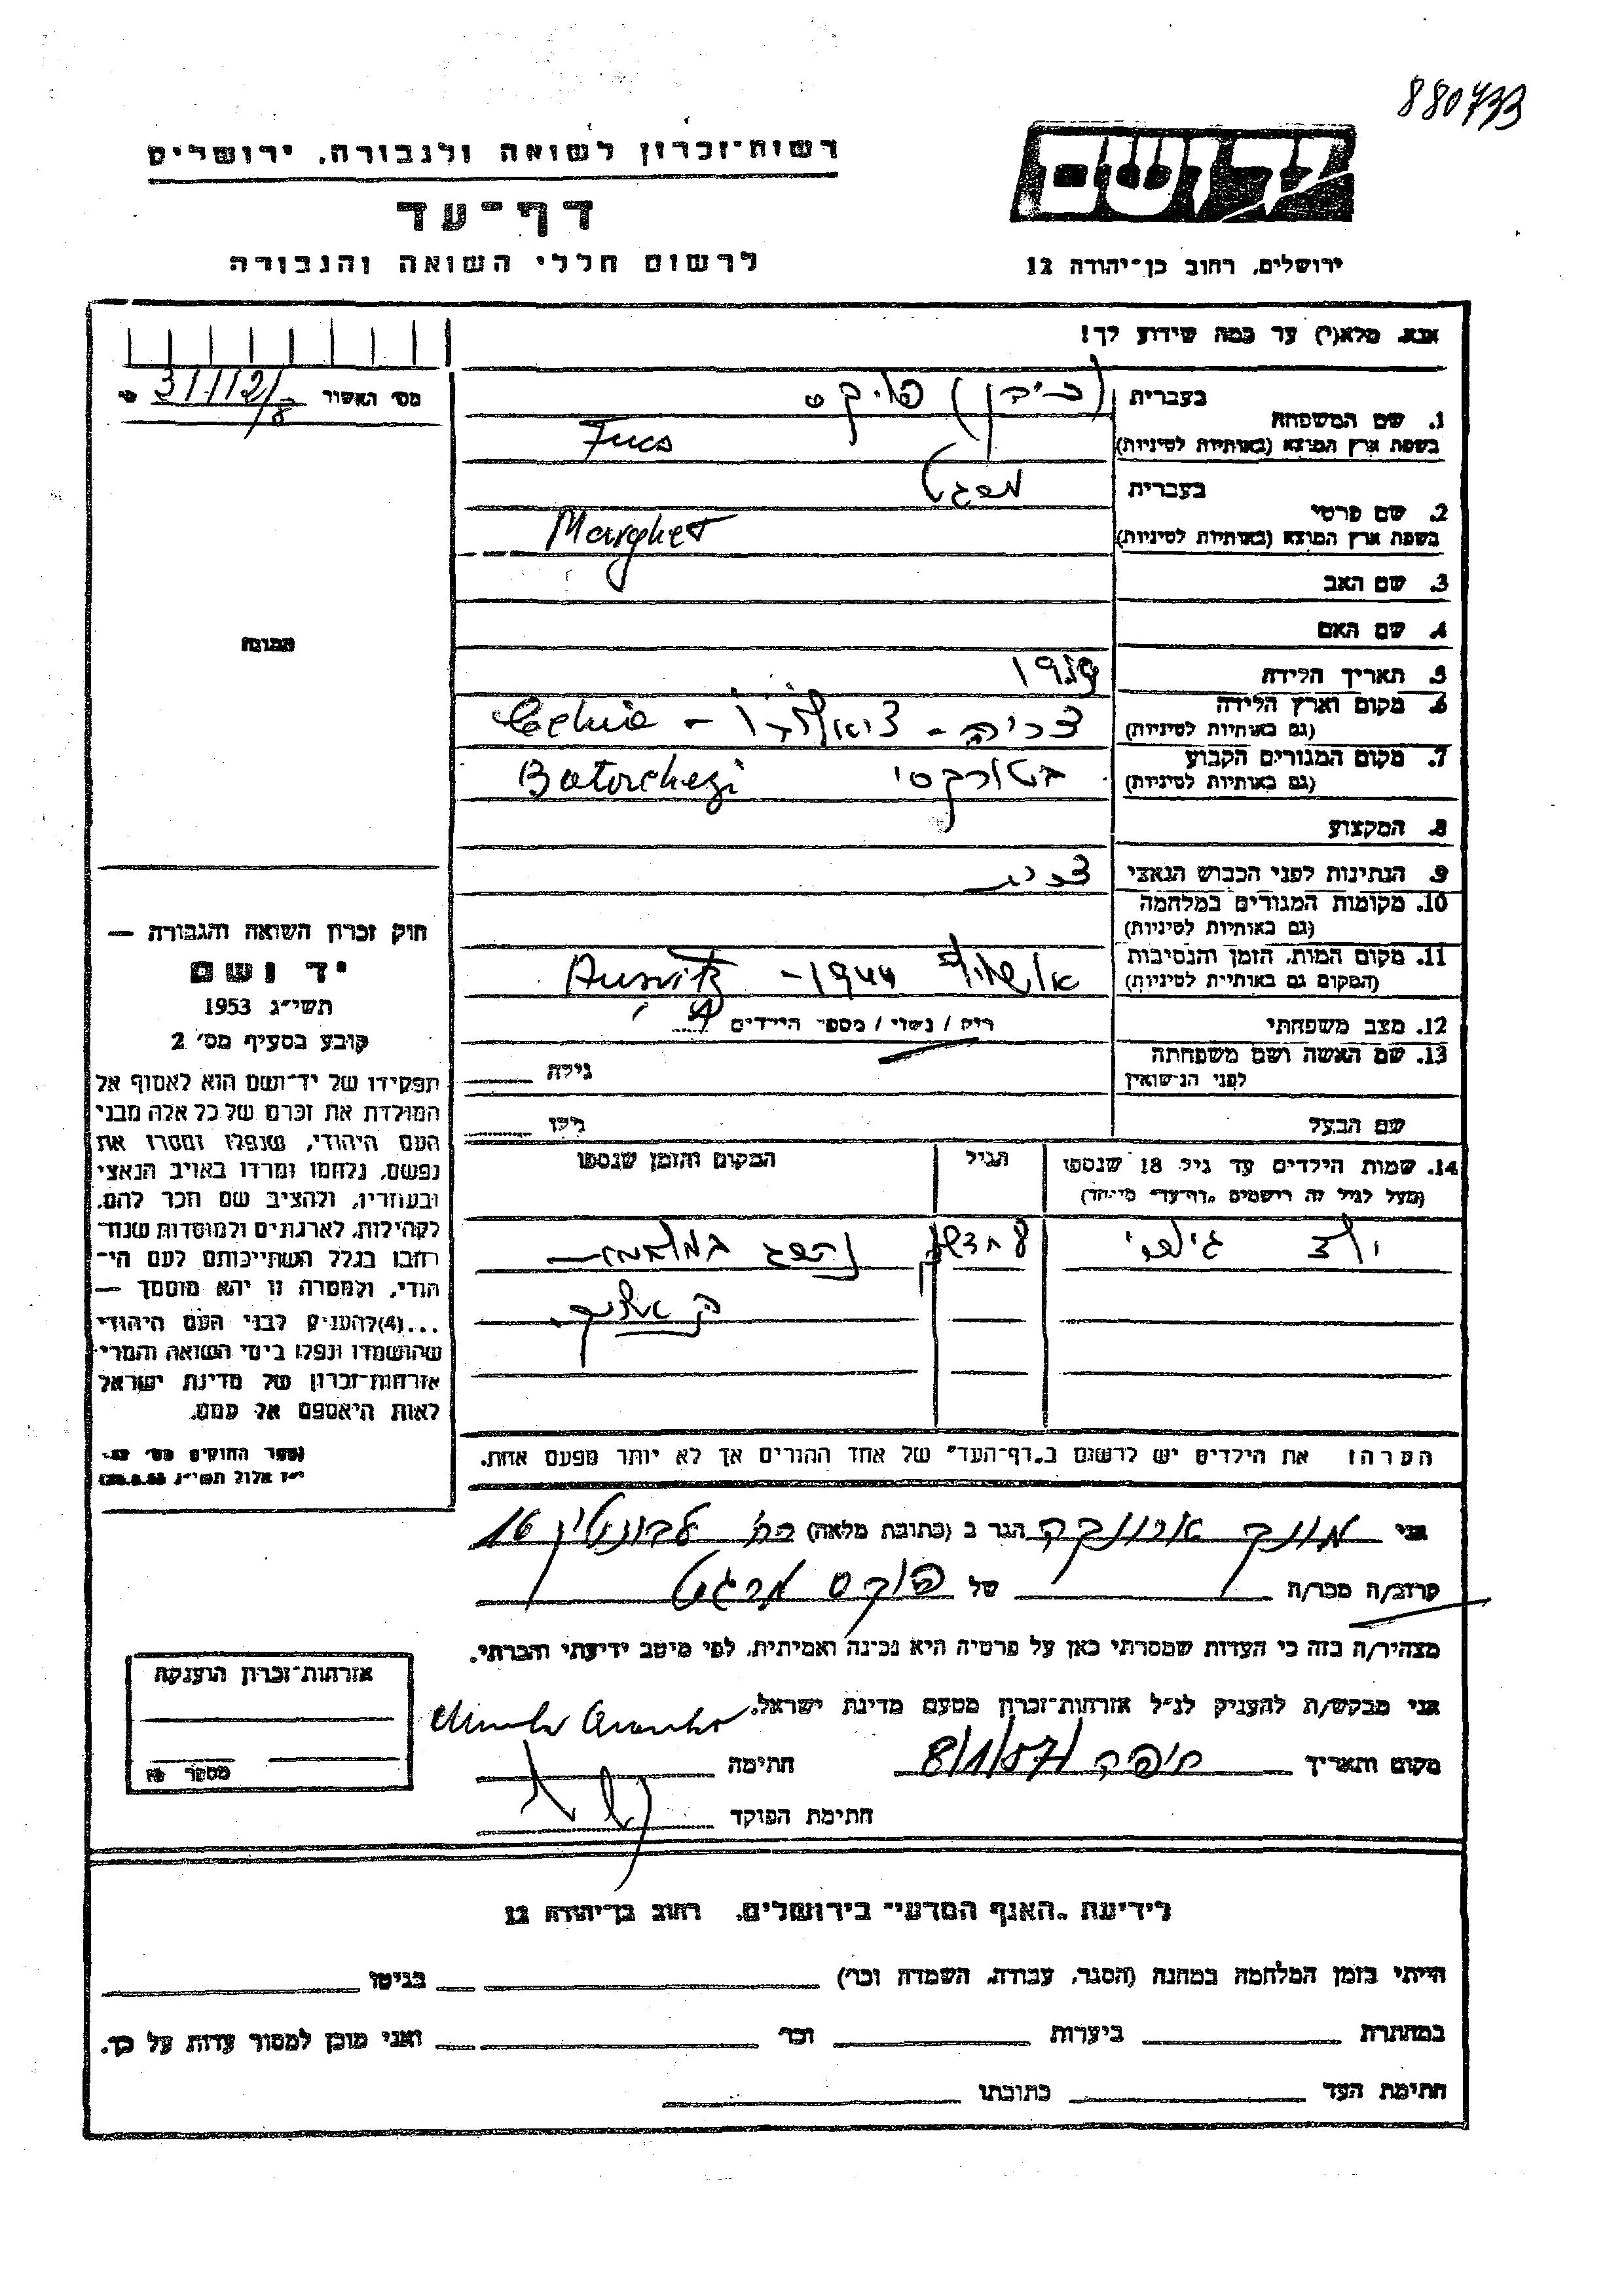 880733
רשות־זכרון לשואה ולגבורה, ירושלים
דף־עד
לרשום חללי השואה והגבורה
יד ושם
ירושלים, רחוב בן־יהודה 12
אנא, מלא(י) עד כמה שידוע לך!
מס' האשור
1. שם המשפחה
בעברית
פוקס
בשפת ארץ המוצא (באותיות לטיניות)
Fucs
2. שם פרטי
בעברית
מרגט
בשפת ארץ המוצא (באותיות לטיניות)
Marghet
3. שם האב
4. שם האם
תמונה
5. תאריך הלידה
6. מקום וארץ הלידה
(גם באותיות לטיניות)
7. מקום המגורים הקבוע
(גם באותיות לטיניות)
בטורקסי Batorchezi
8. המקצוע
9. הנתינות לפני הכבוש הנאצי
10. מקומות המגורים במלחמה
(גם באותיות לטיניות)
11. מקום המות, הזמן והנסיבות
(המקום גם באותיות לטיניות)
1944 - Auswitz
12. מצב משפחתי
רוק / נשוי / מספר הילדים
13. שם האשה ושם משפחתה
לפני הנישואין
גילה
שם הבעל
גילו
14. שמות הילדים עד גיל 18 שנספו
(מעל לגיל זה רושמים „דף־עד" מיוחד)
הגיל
המקום והזמן שנספו
חוק זכרון השואה והגבורה —
יד ושם
תשי"ג 1953
קובע בסעיף מס' 2
תפקידו של יד־ושם הוא לאסוף אל
המולדת את זכרם של כל אלה מבני
העם היהודי, שנפלו ומסרו את
נפשם, נלחמו ומרדו באויב הנאצי
ובעוזריו, ולהציב שם וזכר להם,
לקהילות, לארגונים ולמוסדות שנח־
רבו בגלל השתייכותם לעם הי־
הודי, ולמטרה זו יהא מוסמך —
...(4) להעניק לבני העם היהודי
שהושמדו ונפלו בימי השואה והמרי
אזרחות־זכרון של מדינת ישראל
לאות היאספם אל עמם.
הערה: את הילדים יש לרשום ב„דף־העד" של אחד ההורים אך לא יותר מפעם אחת.
אני
הגר ב (כתובת מלאה)
16
קרוב/ה מכר/ה
של פוקס מרגט
מצהיר/ה בזה כי העדות שמסרתי כאן על פרטיה היא נכונה ואמיתית, לפי מיטב ידיעתי והכרתי.
אני מבקש/ת להעניק לנ"ל אזרחות־זכרון מטעם מדינת ישראל.
מקום ותאריך חיפה 8/1/57
חתימה
חתימת הפוקד
אזרחות־זכרון הוענקה
מספר
לידיעת „האגף המדעי" בירושלים, רחוב בן־יהודה 12
הייתי בזמן המלחמה במחנה (הסגר, עבודה, השמדה וכו')
בגיטו
במחתרת
ביערות
וכו'
ואני מוכן למסור עדות על כך.
חתימת העד
כתובתו